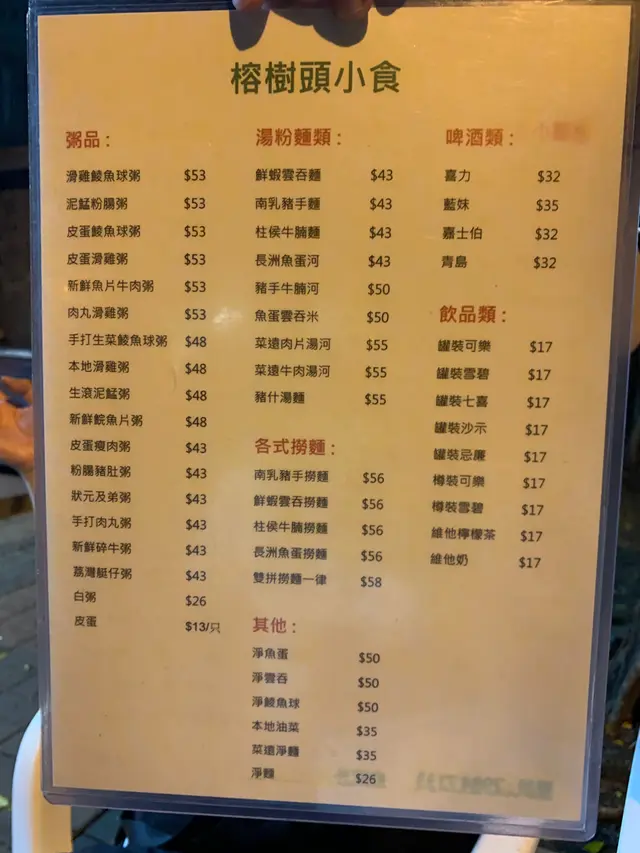 榕樹頭小食
粥品：
滑雞鯪魚球粥 $53
泥鯭粉腸粥 $53
皮蛋鯪魚球粥 $53
皮蛋滑雞粥 $53
新鮮魚片牛肉粥 $53
肉丸滑雞粥 $53
手打生菜鯪魚球粥 $48
本地滑雞粥 $48
生滾泥鯭粥 $48
新鮮鯇魚片粥 $48
皮蛋瘦肉粥 $43
粉腸豬肚粥 $43
狀元及弟粥 $43
手打肉丸粥 $43
新鮮碎牛粥 $43
荔灣艇仔粥 $43
白粥 $26
皮蛋 $13/只
湯粉麵類：
鮮蝦雲吞麵 $43
南乳豬手麵 $43
柱侯牛腩麵 $43
長洲魚蛋河 $43
豬手牛腩河 $50
魚蛋雲吞米 $50
菜遠肉片湯河 $55
菜遠牛肉湯河 $55
豬什湯麵 $55
各式撈麵：
南乳豬手撈麵 $56
鮮蝦雲吞撈麵 $56
柱侯牛腩撈麵 $56
長洲魚蛋撈麵 $56
雙拼撈麵一律 $58
其他：
淨魚蛋 $50
淨雲吞 $50
淨鯪魚球 $50
本地油菜 $35
菜遠淨麵 $35
淨麵 $26
啤酒類：
喜力 $32
藍妹 $35
嘉士伯 $32
青島 $32
飲品類：
罐裝可樂 $17
罐裝雪碧 $17
罐裝七喜 $17
罐裝沙示 $17
罐裝忌廉 $17
樽裝可樂 $17
樽裝雪碧 $17
維他檸檬茶 $17
維他奶 $17